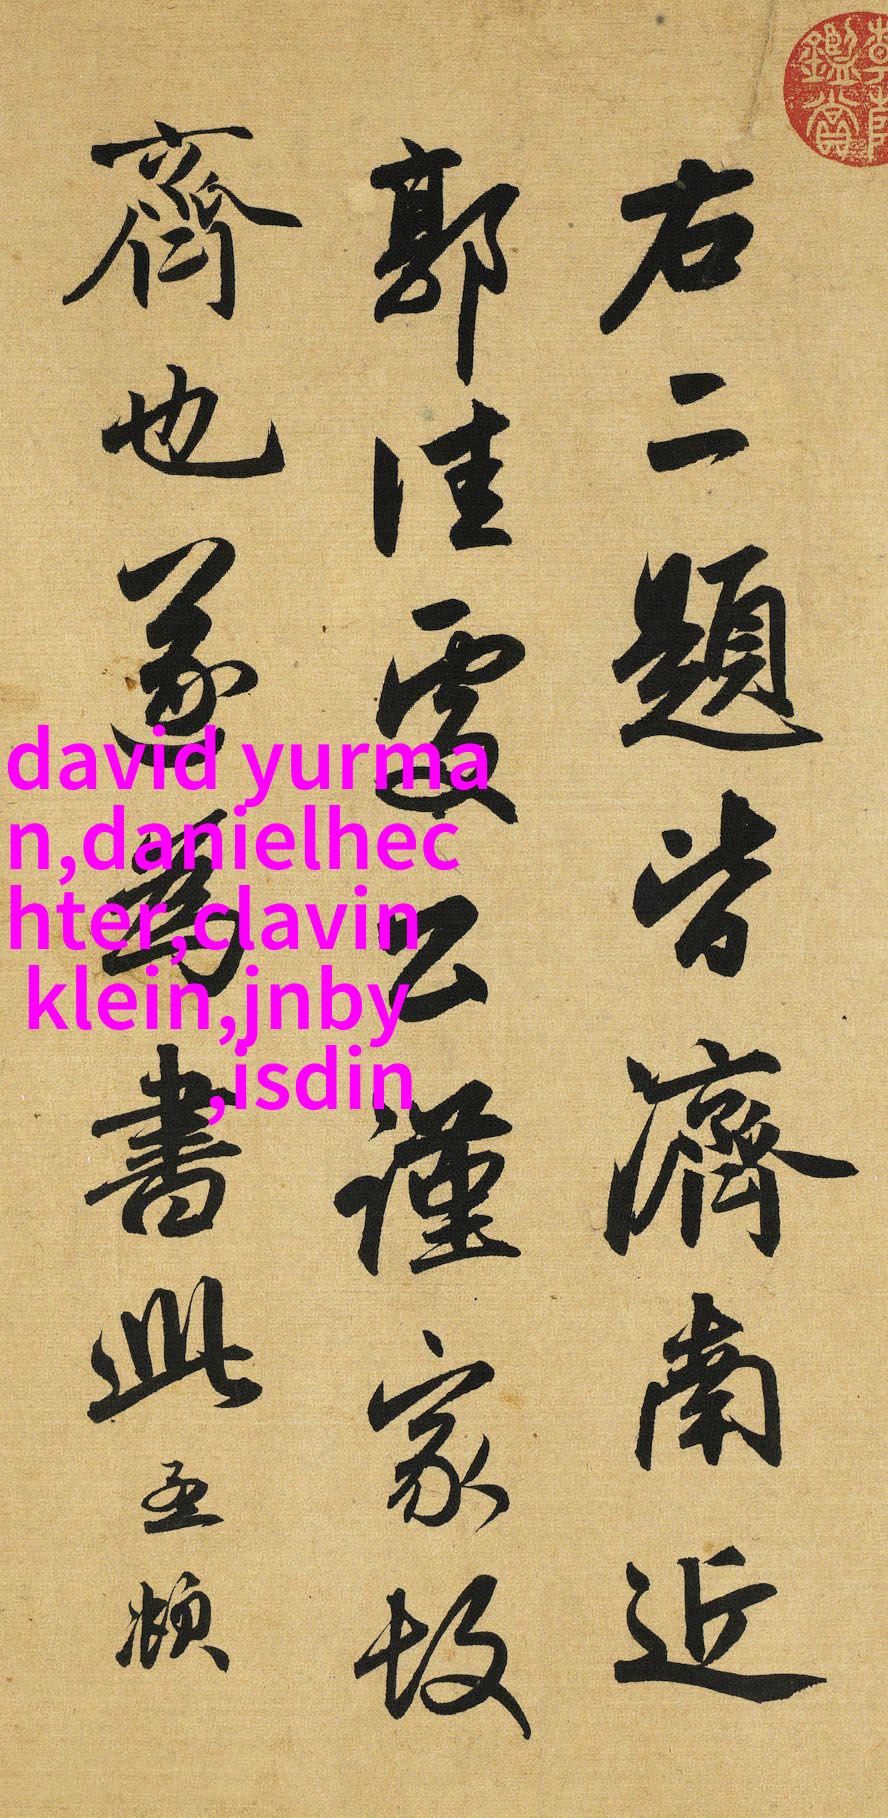 右二題皆濟南近
郭佳處公謹家故
齊也遂為書此孟頫
david yurma
n,danielhec
hter,clavin
klein,jnby
,isdin
鑑賞